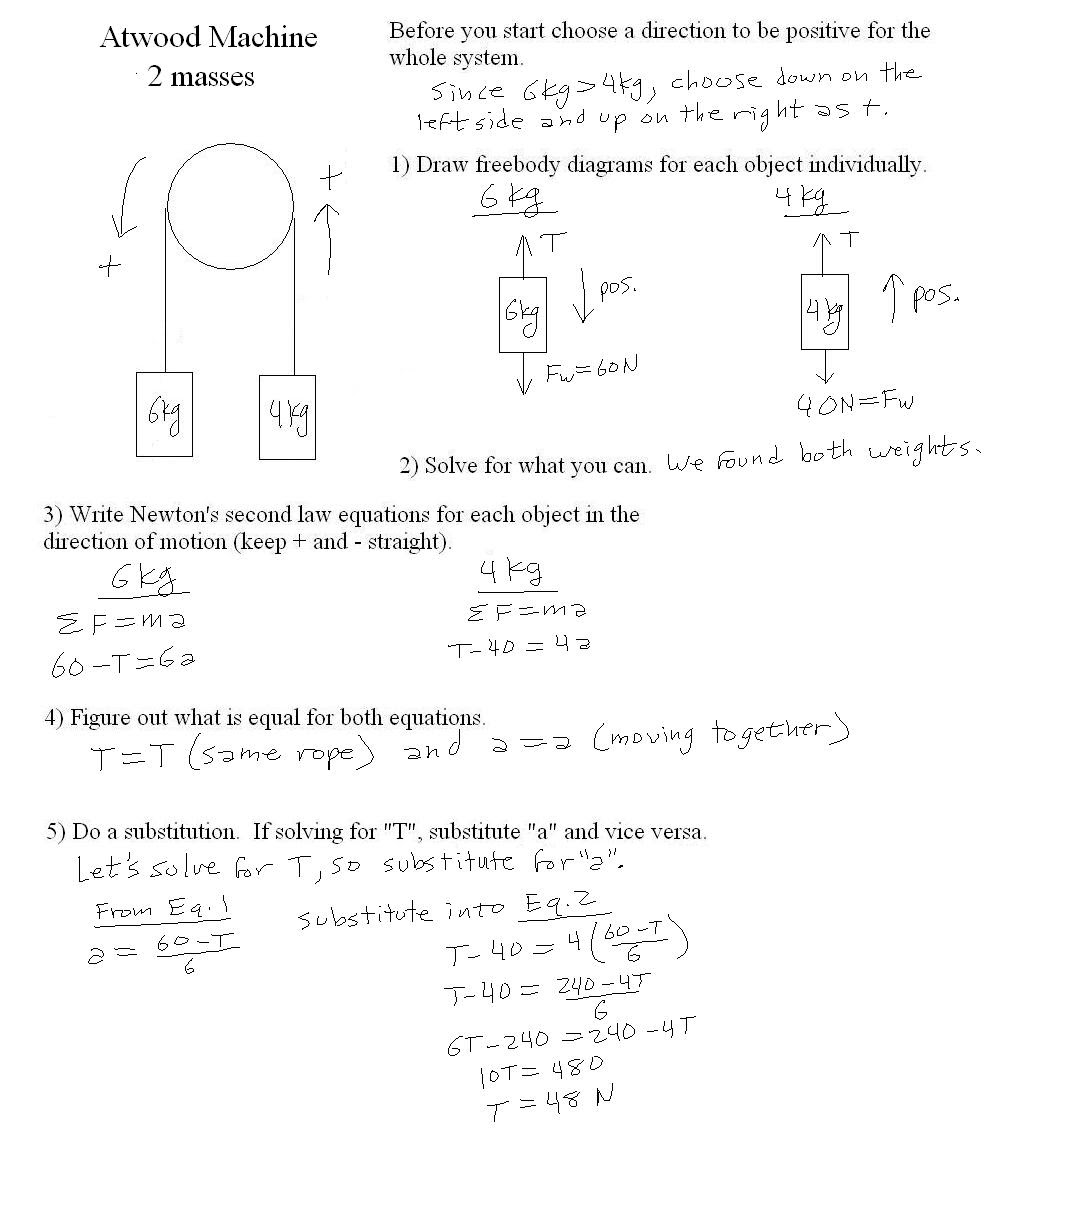 Atwood Machine
2 masses
Before you start choose a direction to be positive for the
whole system.
Since 6kg>4kg, choose down on the
left side and up on the right as +.
+
+
6kg
4kg
1) Draw freebody diagrams for each object individually.
6 kg
4 kg
T
T
6kg
pos.
4kg
pos.
Fw=60N
40N=Fw
2) Solve for what you can. We found both weights.
3) Write Newton's second law equations for each object in the
direction of motion (keep + and - straight).
6kg
4 kg
ΣF=ma
ΣF=ma
60-T=6a
T-40=4a
4) Figure out what is equal for both equations.
T=T (same rope) and a=a (moving together)
5) Do a substitution. If solving for "T", substitute "a" and vice versa.
Let's solve for T, so substitute for "a".
From Eq.1
substitute into Eq.2
a= 60-T
6
T-40=4(60-T
6)
T-40= 240-4T
6
6T-240=240-4T
10T=480
T=48 N